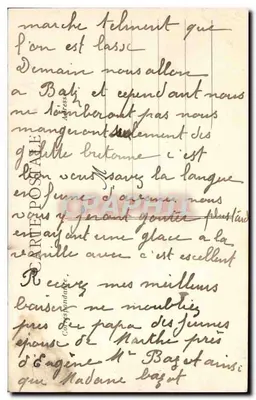 marche telment que
l'on est lasse
Demain nous allon
a Batz et cependant nous
ne tomberont pas nous
mangeront seulement des
galette bretonne c'est
bon vous savez la langue
en fume d'avance nous
vous y feront goutée plus tard
en ayant une glace a la
vanille avec c'est excellent
Recevez mes meilleurs
baiser ne moubliez
pres de papa des jeunes
épouse de Marthe près
d'Eugène Mr Bazot ainsi
que Madame bazot
CARTE POSTALE
Correspondance
Adresse
CPAPHIL